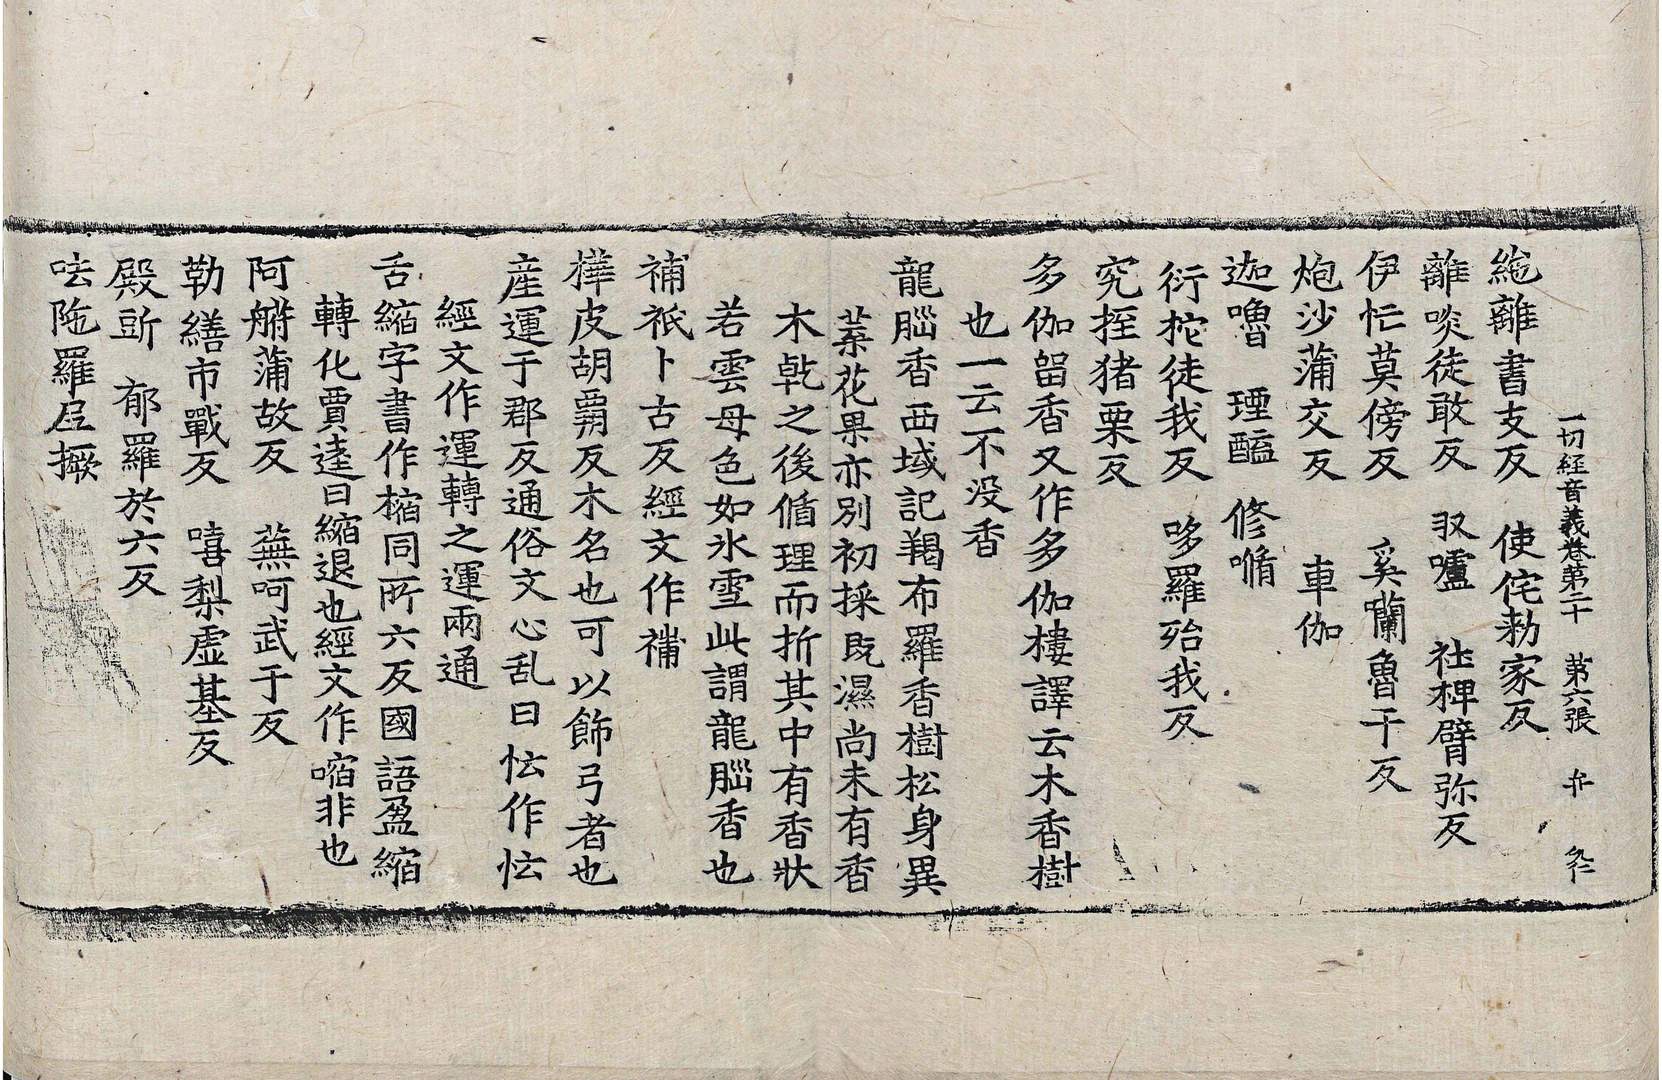 一切経音義卷第二十 第六張 弁
絁離書支反 使侘勑家反
離啖徒敢反 㕛嚧 社椑臂弥反
伊恾莫傍反 奚囒魯干反
炮沙蒲交反 車伽
迦嚕 堙醯 修喖
衍柁徒我反 哆羅殆我反
究挃猪栗反
多伽留香又作多伽樓譯云木香樹
也一云不没香
龍腦香西域記羯布羅香樹松身異
葉花果亦別初採既濕尚未有香
木乹之後循理而折其中有香狀
若雲母色如氷雪此謂龍腦香也
補祇卜古反經文作補
樺皮胡霸反木名也可以飾弓者也
産運于郡反通俗文心乱曰忶作忶
經文作運轉之運兩通
舌縮字書作樎同所六反國語盈縮
轉化賈逵曰縮退也經文作㗜非也
阿艊蒲故反 蕪呵武于反
勒繕市戰反 嘻梨虛基反
殿㖃 郁羅於六反
呿陁羅尼撅